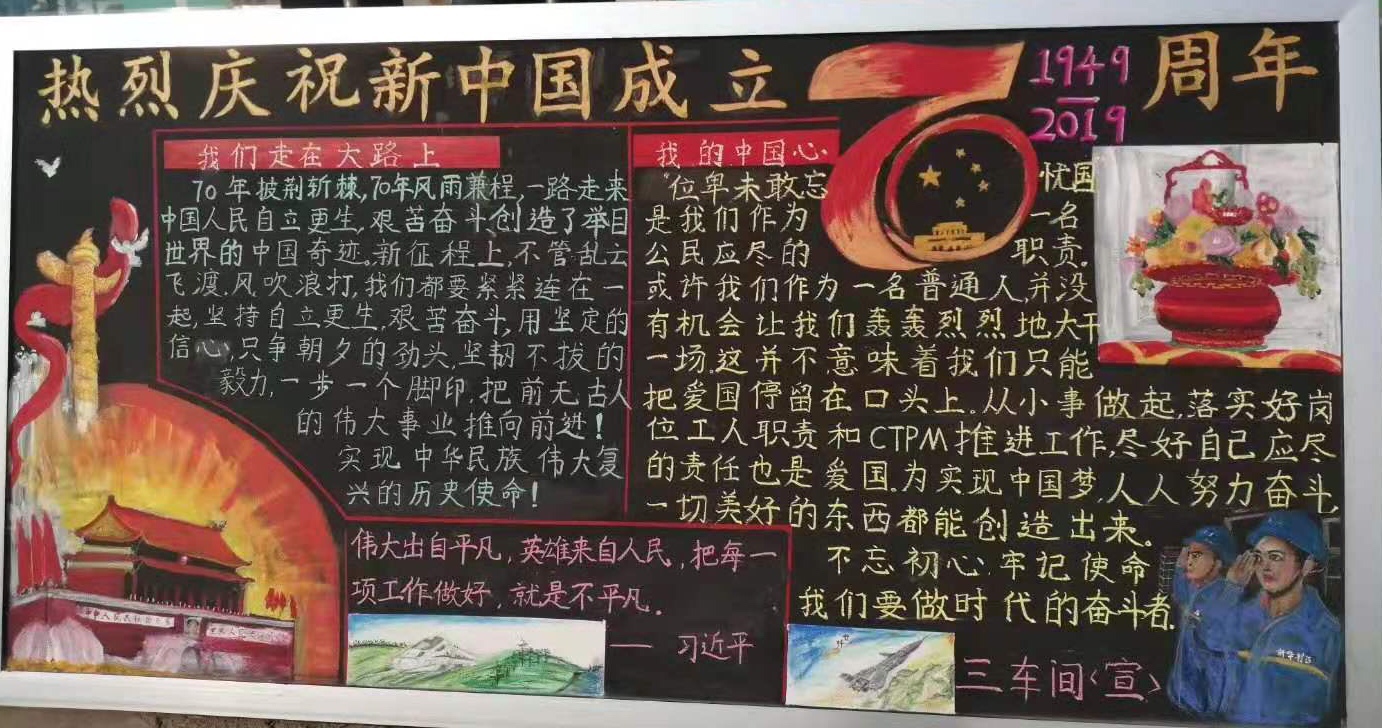 热烈庆祝新中国成立70周年
1949
2019
我们走在大路上
70年披荆斩棘,70年风雨兼程,一路走来
中国人民自立更生,艰苦奋斗,创造了举目
世界的中国奇迹.新征程上,不管乱云
飞渡.风吹浪打,我们都要紧紧连在一
起,坚持自立更生,艰苦奋斗,用坚定的
信心,只争朝夕的劲头,坚韧不拔的
毅力,一步一个脚印,把前无古人
的伟大事业推向前进!
实现中华民族伟大复
兴的历史使命!
我的中国心
"位卑未敢忘忧国
是我们作为一名
公民应尽的职责.
或许我们作为一名普通人,并没
有机会让我们轰轰烈烈地大干
一场.这并不意味着我们只能
把爱国停留在口头上.从小事做起,落实好岗
位工人职责和CTPM推进工作,尽好自己应尽
的责任也是爱国.为实现中国梦,人人努力奋斗,
一切美好的东西都能创造出来。
不忘初心.牢记使命
我们要做时代的奋斗者.
伟大出自平凡,英雄来自人民,把每一
项工作做好,就是不平凡.
—— 习近平
三车间〈宣〉